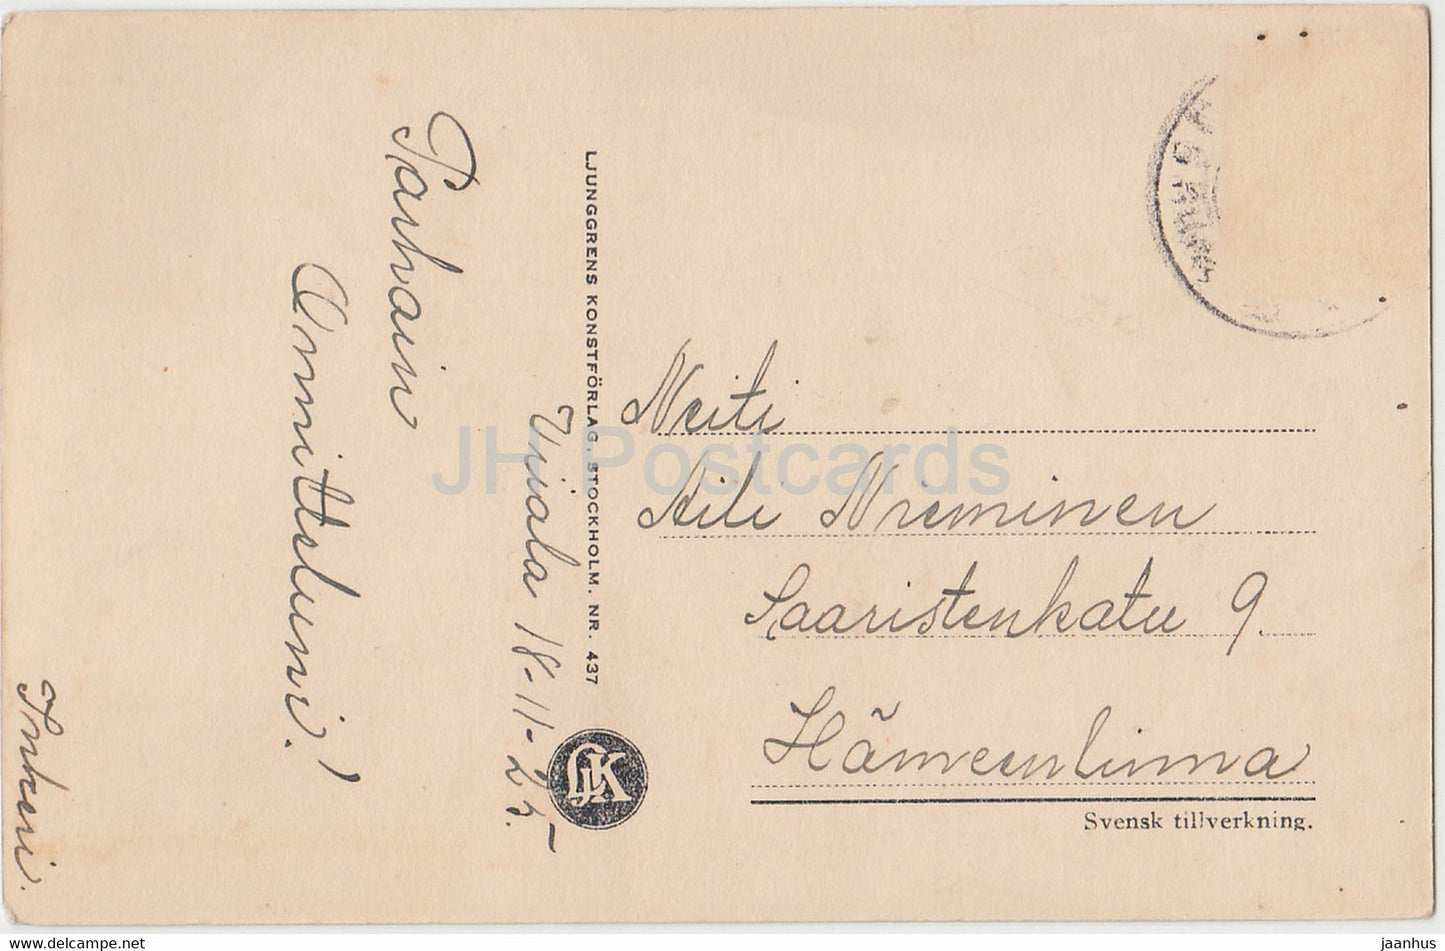 Parhain
Onnittelumi!
Inkeri.
Viiala 18-11-25.
LJUNGGRENS KONSTFÖRLAG, STOCKHOLM. NR. 437
LJK
Neiti
Aili Nieminen
Saaristenkatu 9.
Hämeenlinna
Svensk tillverkning.
JH Postcards
www.delcampe.net
jaanhus